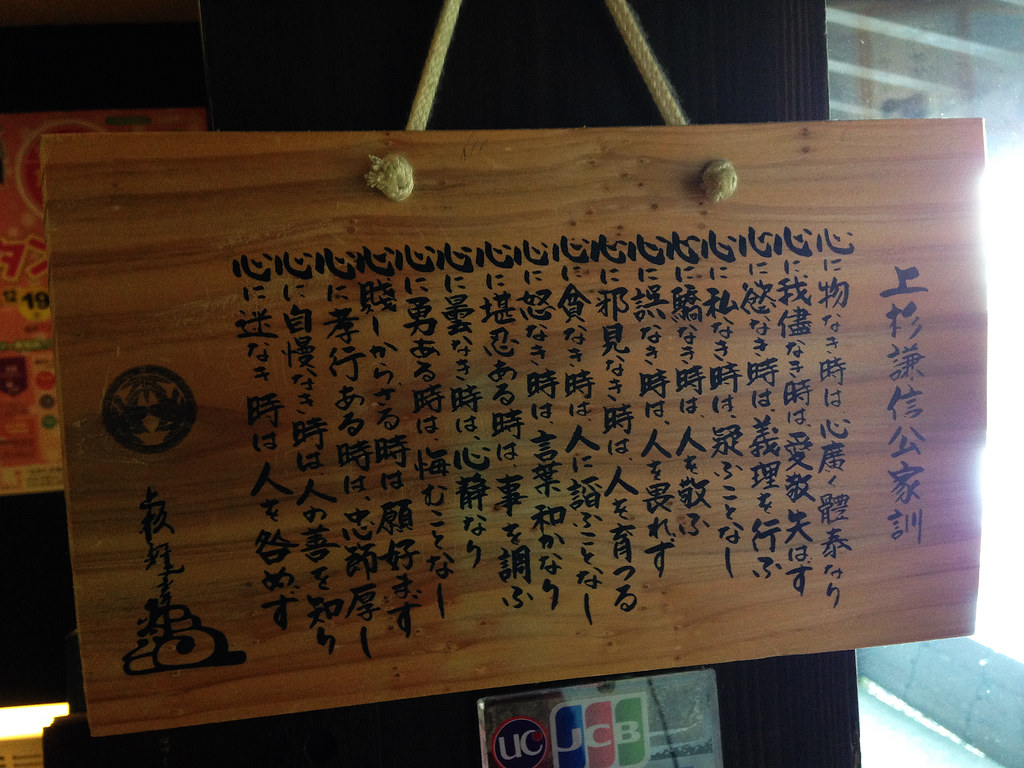 上杉謙信公家訓
心に物なき時は、心廣く體泰なり
心に我儘なき時は、愛敬失はず
心に慾なき時は、義理を行ふ
心に私なき時は、疑ふことなし
心に驕なき時は、人を敬ふ
心に誤なき時は、人を畏れず
心に邪見なき時は、人を育つる
心に貪なき時は、人に諂ふことなし
心に怒なき時は、言葉和かなり
心に堪忍ある時は、事を調ふ
心に曇なき時は、心静なり
心に勇ある時は、悔むことなし
心賤しからざる時は、願好まず
心に孝行ある時は、忠節厚し
心に自慢なき時は人の善を知り
心に迷なき時は人を咎めず
12
19
UC
JCB